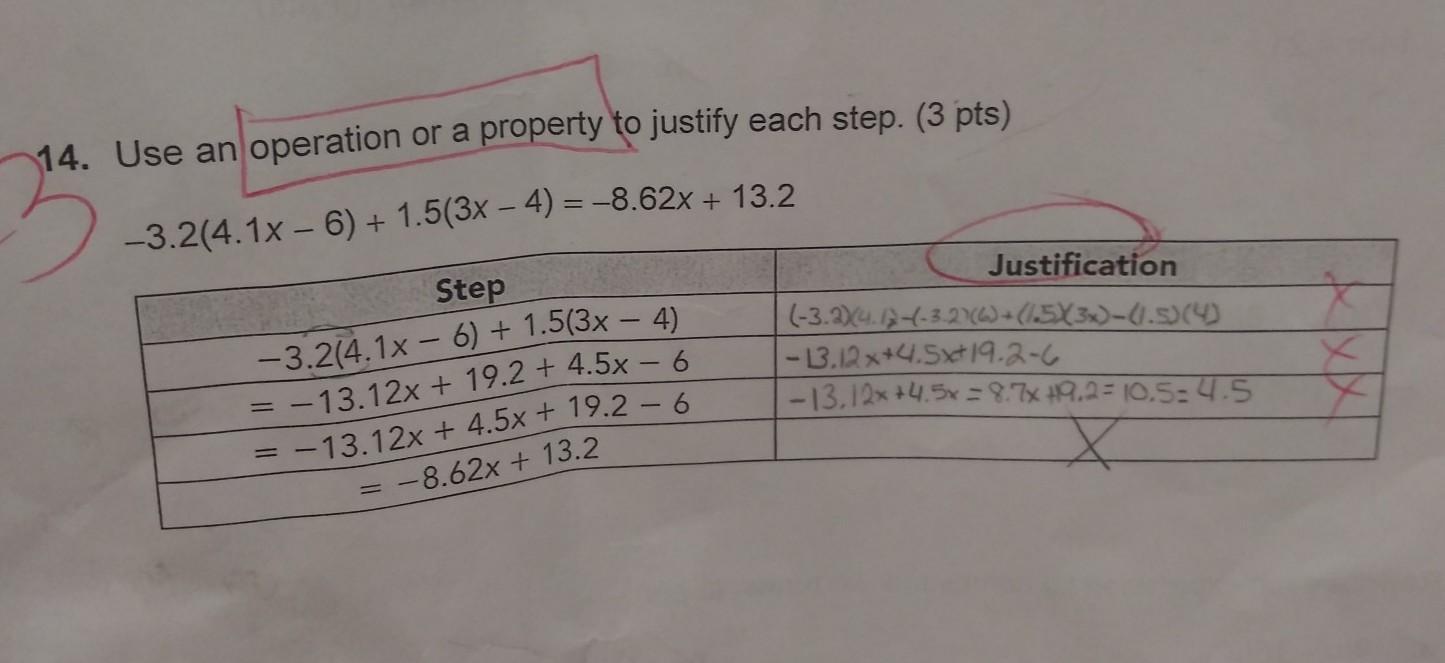 14. Use an operation or a property to justify each step. (3 pts)
3
–3.2(4.1x – 6) + 1.5(3x – 4) = –8.62x + 13.2
Step Justification
–3.2(4.1x – 6) + 1.5(3x – 4) (-3.2)(4.1)-(-3.2)(6)+(1.5)(3x)-(1.5)(4) X
= –13.12x + 19.2 + 4.5x – 6 -13.12x+4.5x+19.2-6 X
= –13.12x + 4.5x + 19.2 – 6 -13.12x+4.5x=8.7x+19.2=10.5=4.5 X
= –8.62x + 13.2 X